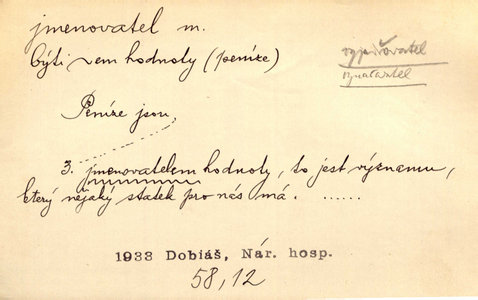 jmenovatel m.
býti ~em hodnoty (peníze)
vyjadřovatel
označovatel
Peníze jsou,
3. jmenovatelem hodnoty, to jest významu,
který nějaký statek pro nás má. ......
1933 Dobiáš, Nár. hosp.
58,12